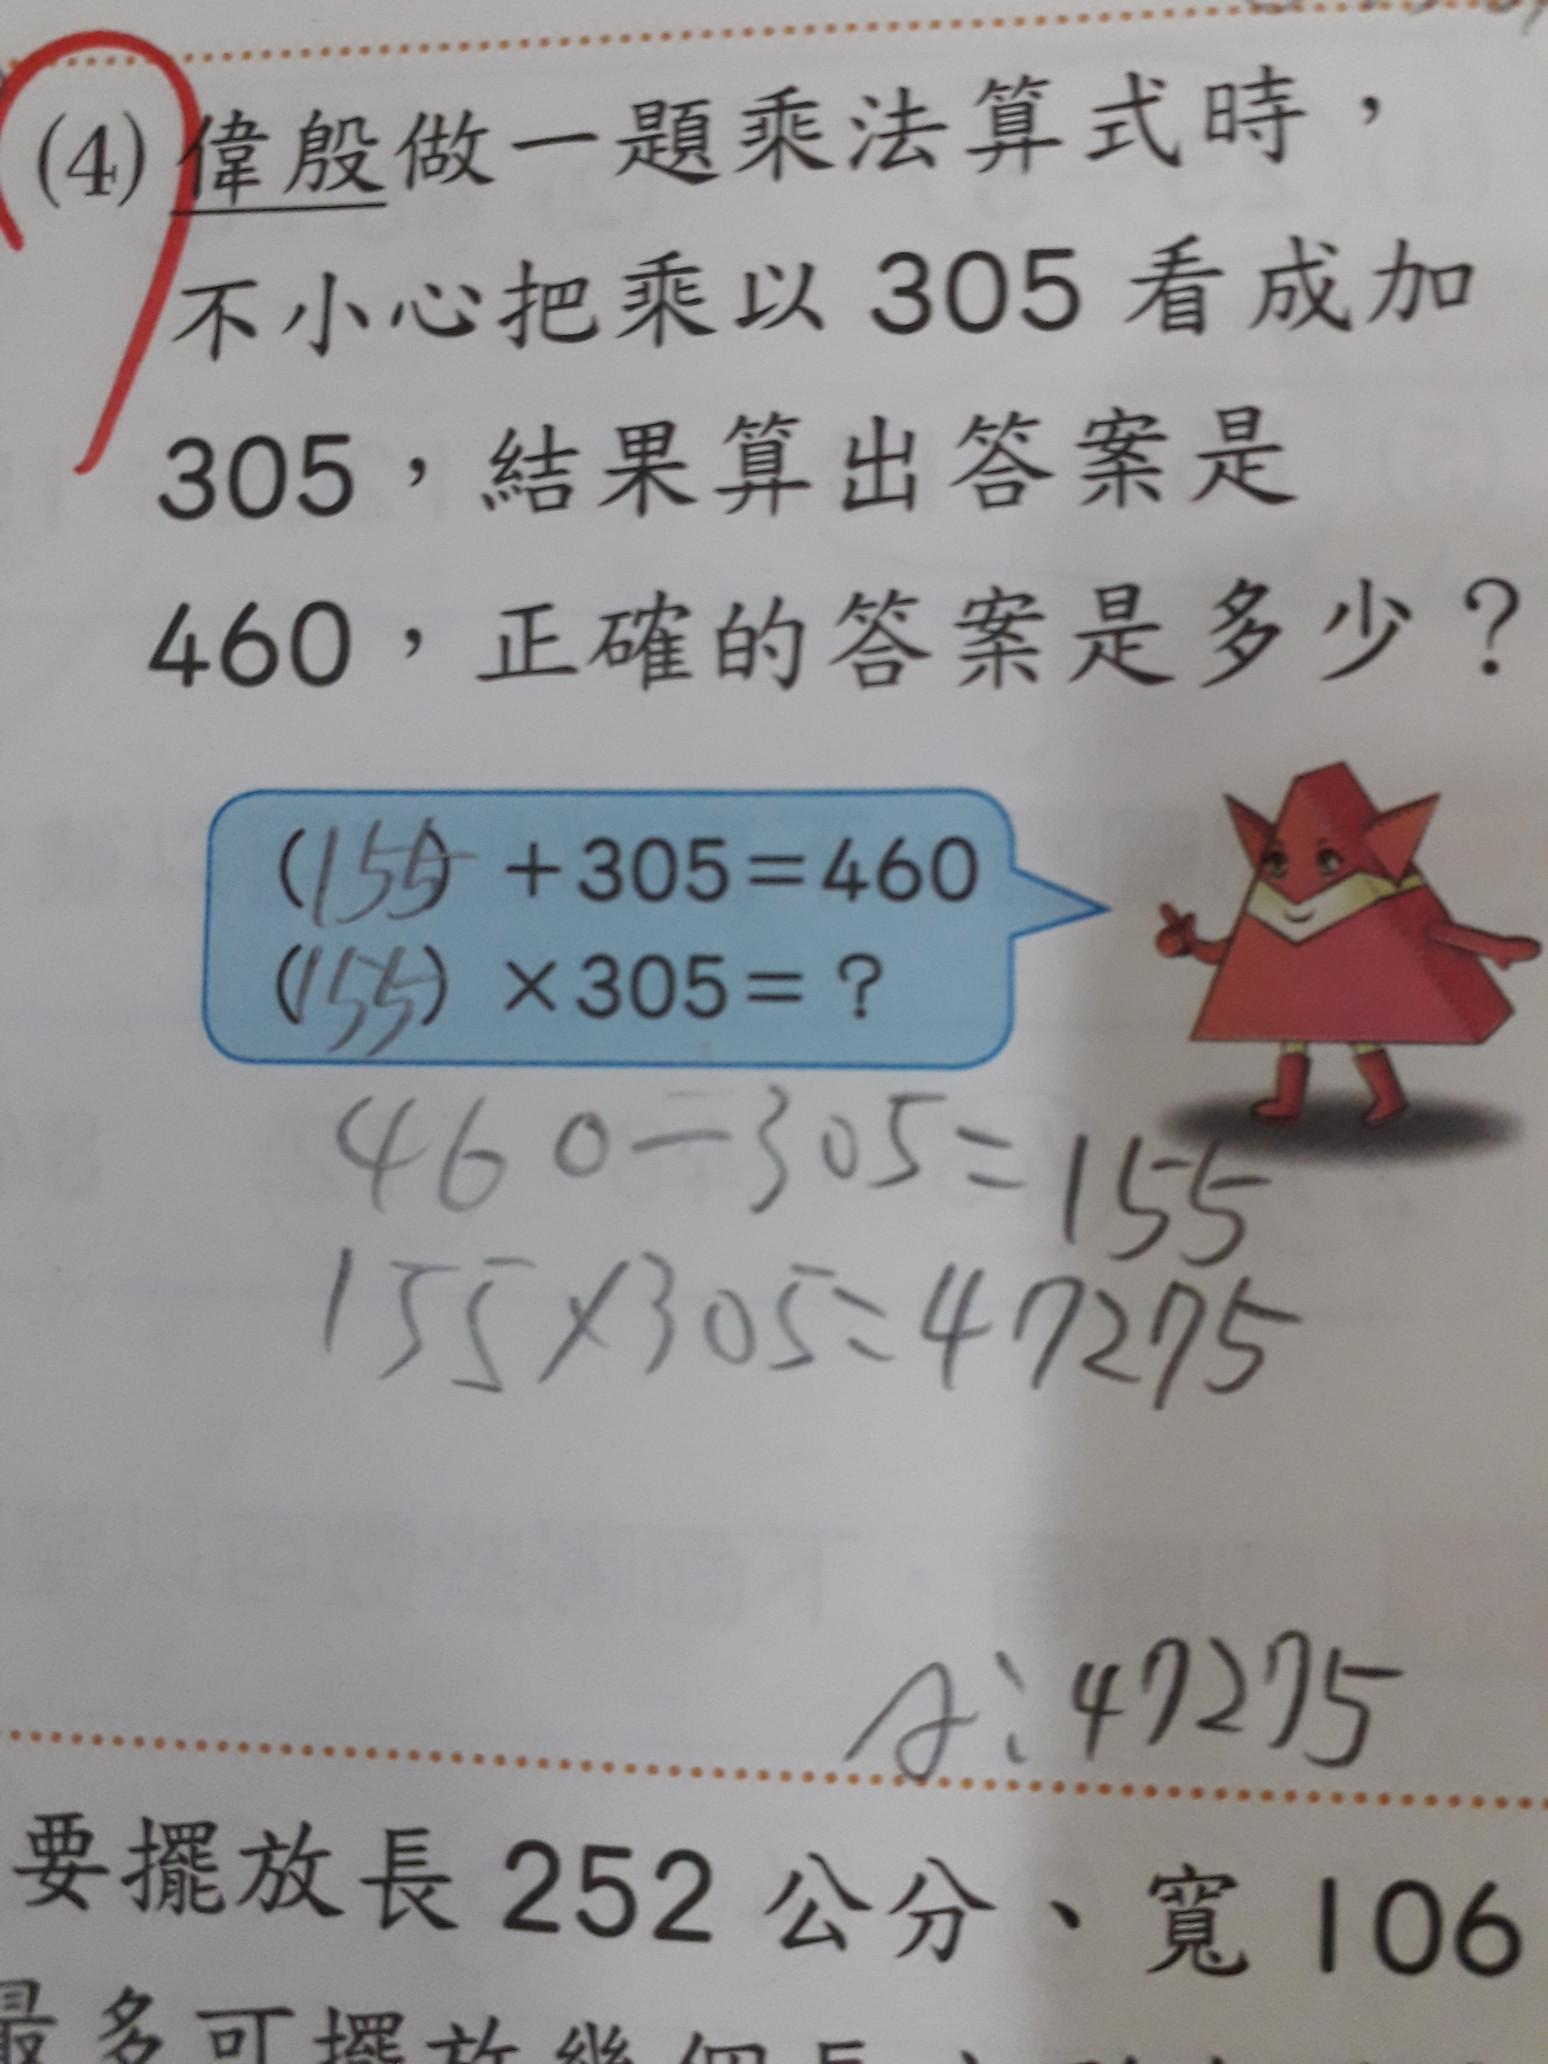 (4) 偉殷做一題乘法算式時，
不小心把乘以 305 看成加
305，結果算出答案是
460，正確的答案是多少？
(155) ＋305＝460
(155) ×305＝？
460－305＝155
155×305＝47275
A：47275
要擺放長 252 公分、寬 106
最多可擺放幾個長